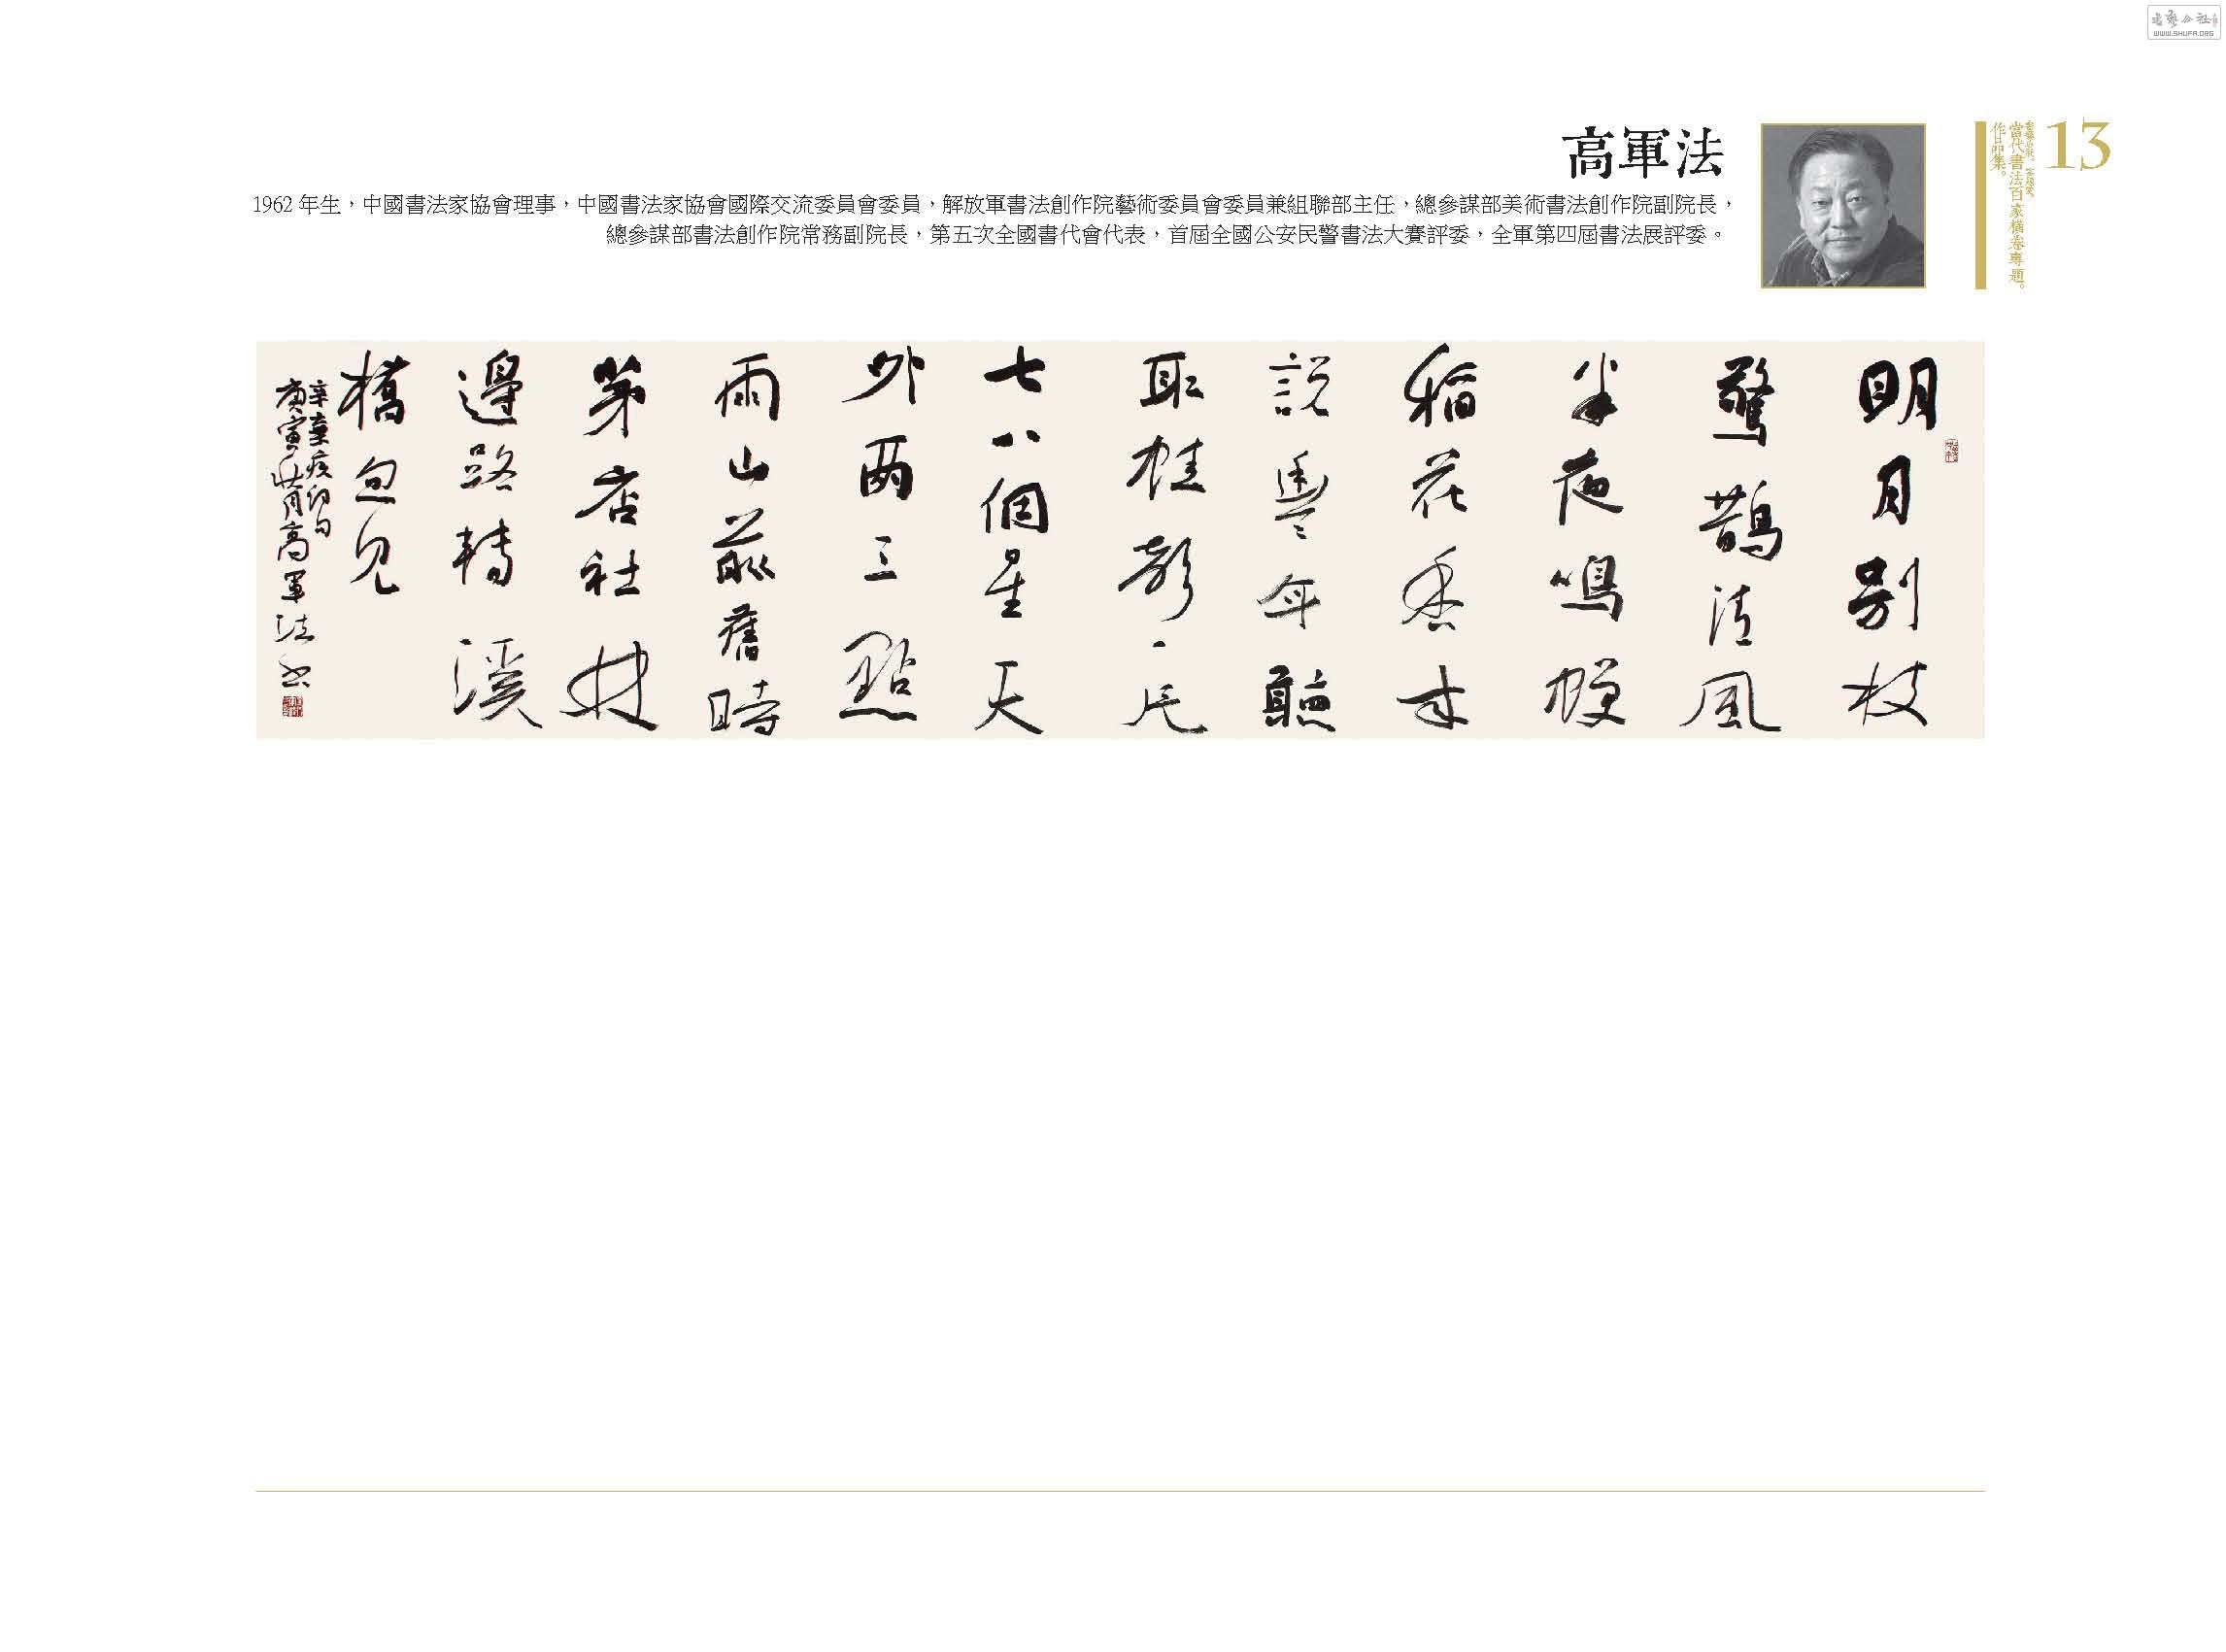 書藝公社
WWW.SHUFA.ORG
13
當代書法百家橫卷專題。
作品集。
高軍法
1962 年生，中國書法家協會理事，中國書法家協會國際交流委員會委員，解放軍書法創作院藝術委員會委員兼組聯部主任，總參謀部美術書法創作院副院長，
總參謀部書法創作院常務副院長，第五次全國書代會代表，首屆全國公安民警書法大賽評委，全軍第四屆書法展評委。
明月別枝
驚鵲清風
半夜鳴蟬
稻花香
説豐年聽
取蛙聲一片
七八個星天
外两三點
雨山前舊時
茅店社林
邊路轉溪
橋忽見
辛棄疾詞句
庚寅壯月高軍法書